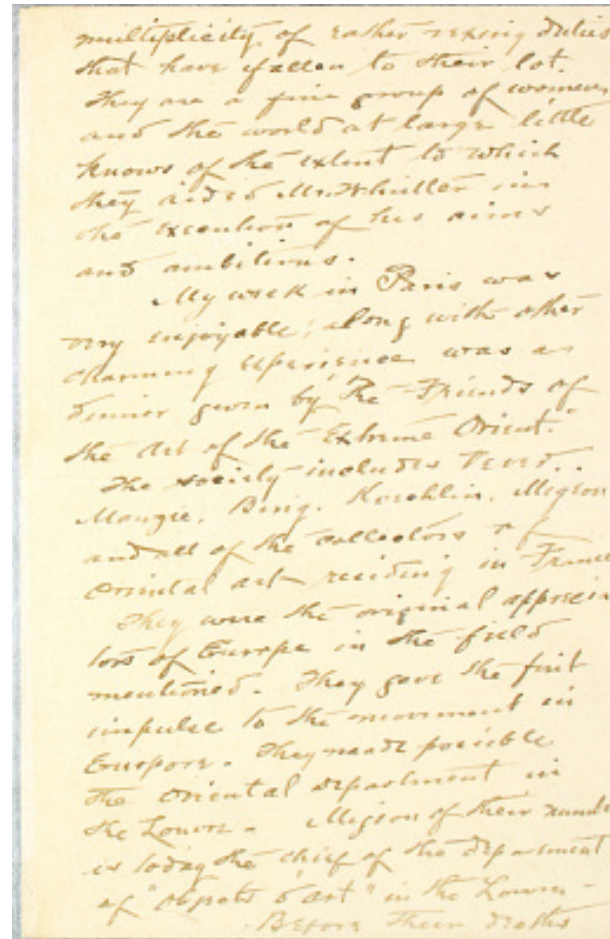 multiplicity of rather vexing duties
that have fallen to their lot.
They are a fine group of women
and the world at large little
knows of the extent to which
they aided Mr. Whistler in
the execution of his aims
and ambitions.
My week in Paris was
very enjoyable; along with other
charming experience was a
dinner given by "The Friends of
the Art of the Extreme Orient."
The society includes Vever,
Manzie, Bing, Koechlin, Migeon
and all of the collectors of
oriental art residing in France
They were the original apprecia
tors of Europe in the field
mentioned. They gave the first
impulse to the movement in
Europe. They made possible
the oriental department in
the Louvre - Migeon of their numb
is today the chief of the department
of "objets d'art" in the Louvre -
Before their deaths